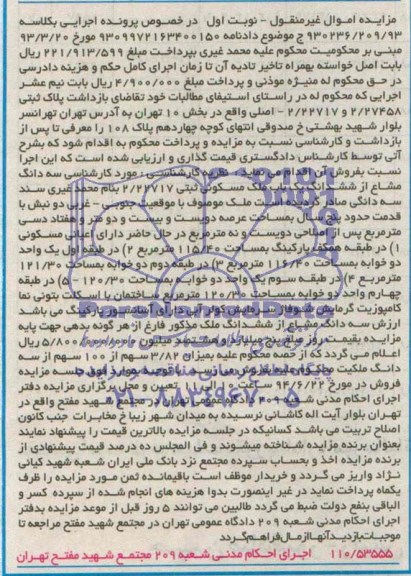 مزایده اموال غیرمنقول - نوبت اول در خصوص پرونده اجرایی بکلاسه
۹۳۰۲۳۶/۲۰۹/۹۳ ج موضوع دادنامه ۹۳۰۹۹۷۲۱۶۳۴۰۰۱۵۰ مورخ ۹۳/۳/۲۰
مبنی بر محکومیت محکوم علیه محمد غیری بپرداخت مبلغ ۲۲۱/۹۱۳/۵۹۹ ریال
بابت اصل خواسته بهمراه تاخیر تادیه آن تا زمان اجرای کامل حکم و هزینه دادرسی
در حق محکوم له منیژه موذنی و پرداخت مبلغ ۴/۹۰۰/۰۰۰ ریال بابت نیم عشر
اجرایی که محکوم له در راستای استیفای مطالبات خود تقاضای بازداشت پلاک ثبتی
۲/۲۷۴۵۸ - ۲/۲۲۷۱۷ اصلی واقع در بخش ۱۰ تهران به آدرس تهران تهرانسر
بلوار شهید بهشتی خ صدوقی انتهای کوچه چهاردهم پلاک ۱۰۸ را معرفی تا پس از
بازداشت و کارشناسی نسبت به مزایده و پرداخت محکوم به اقدام شود که بشرح
آتی توسط کارشناس دادگستری قیمت گذاری و ارزیابی شده است که این اجرا
نسبت بفروش آن اقدام نماید. نظریه کارشناسی: مورد کارشناسی سه دانگ
مشاع از ششدانگ ملک مسکونی ثبتی ۲/۲۲۷۱۷ بنام محمد غیری سند
سه دانگی صادر گردیده است ملک موصوف با موقعیت جنوبی - غربی دو نبش با
قدمت حدود پنج سال بمساحت عرصه دویست و بیست و دو متر و هفتاد دسی
مترمربع پس از اصلاحی دویست و نه مترمربع در حال حاضر دارای اعیانی مسکونی
۱) در طبقه همکف پارکینگ بمساحت ۱۱۵/۴۰ مترمربع ۲) در طبقه اول یک واحد
دو خوابه بمساحت ۱۱۶/۴۰ مترمربع ۳) در طبقه دوم دو خوابه بمساحت ۱۲۱/۳۰
مترمربع ۴) در طبقه سوم یک واحد دو خوابه بمساحت ۱۲۰/۳۰ ۵) در طبقه
چهارم واحد دو خوابه بمساحت ۱۲۰/۳۰ مترمربع ساختمان با اسکلت بتونی نما
کامپوزیت گرمایش شوفاژ سرمایش کولر آبی دارای آسانسور و پارکینگ می باشد
ارزش سه دانگ مشاع از ششدانگ ملک مذکور فارغ از هر گونه بدهی جهت پایه
مزایده بقیمت روز مبلغ پنج میلیارد و هشتصد میلیون ۵/۸۰۰/ ریال
اعلام می گردد که از حصه محکوم علیه بمیزان ۳/۸۲ سهم از ۱۰۰ سهم از سه
دانگ ملکیت محکوم علیه بفروش جلسه مزایده
فروش در مورخ ۹۴/۶/۲۲ ساعت تعیین و محل برگزاری مزایده دفتر
اجرای احکام مدنی عمومی تهران در مجتمع شهید مفتح واقع در
تهران بلوار آیت اله کاشانی نرسیده به میدان شهر زیبا خ مخابرات جنب کانون
اصلاح تربیت می باشد کسانیکه در جلسه مزایده بالاترین قیمت را پیشنهاد نمایند
بعنوان برنده مزایده شناخته میشوند و فی المجلس ده درصد قیمت پیشنهادی از
برنده مزایده اخذ و بحساب سپرده مجتمع نزد بانک ملی ایران شعبه شهید کیانی
نژاد واریز می گردد و خریدار موظف است باقیمانده ثمن مورد مزایده را ظرف
یکماه پرداخت نماید در غیر اینصورت بدوا هزینه های انجام شده از سپرده کسر و
الباقی بنفع دولت ضبط می گردد طالبین می توانند ۵ روز قبل از موعد مزایده بدفتر
اجرای احکام مدنی شعبه ۲۰۹ دادگاه عمومی تهران در مجتمع شهید مفتح مراجعه تا
موجبات بازدید آنها از مال فراهم گردد
۱۱۰/۵۳۵۵۵ اجرای احکام مدنی شعبه ۲۰۹ مجتمع شهید مفتح تهران